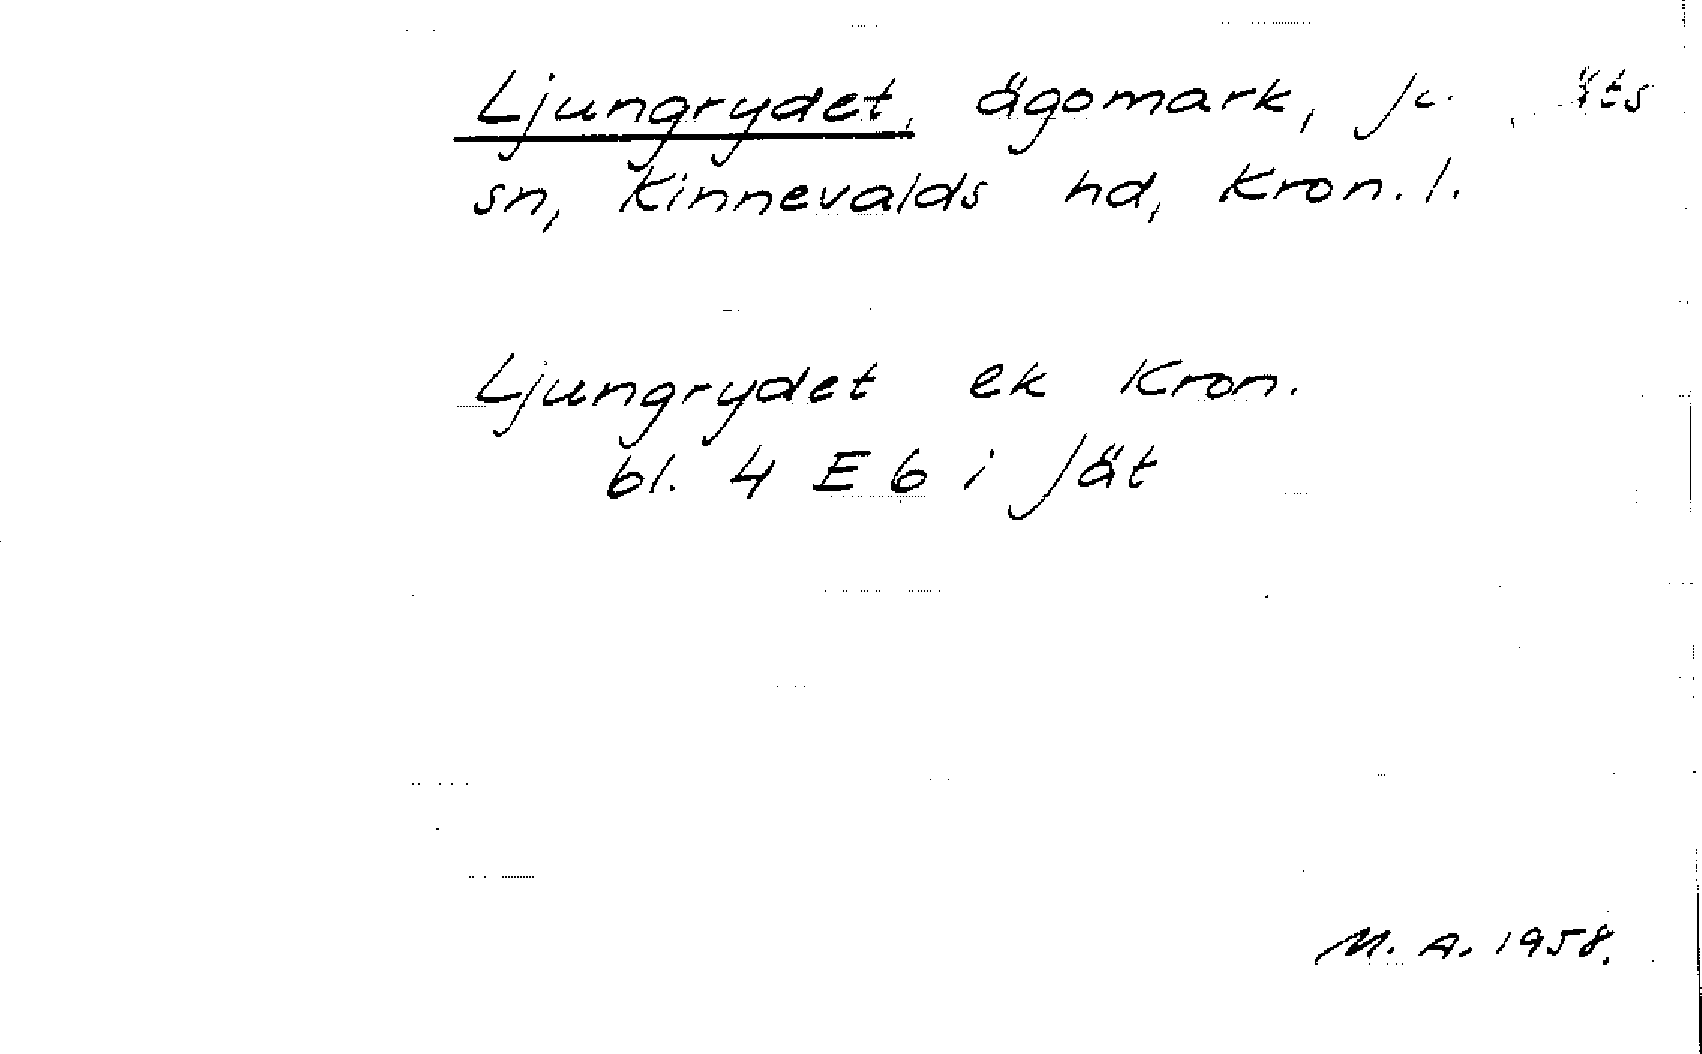 Ljungrydet, ägomark,
sn, Kinnevalds hd, Kron. l.
Ljungrydet ek Kron.
bl. 4 E 6 i Jät
M. A. 1958.